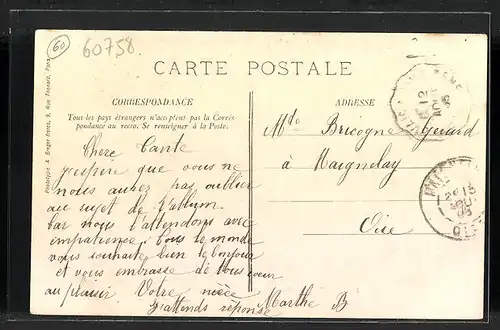 60
60758.
CARTE POSTALE
CORRESPONDANCE
Tous les pays étrangers n'acceptent pas la Corres-
pondance au recto. Se renseigner à la Poste.
ADRESSE
Prototype A. Breger frères, 9, Rue Thénard, Paris
Chère Tante
j'espère que vous ne
nous aurez pas oublier
au sujet de l'album
car nous l'attendons avec
impatience. tous le monde
vous souhaite bien le bonjour
et vous embrasse de tous coeur
au plaisir Votre nièce
j'attends réponse Marthe B
Bricogne Guirard
à Maignelay
Oise
12
AOUT